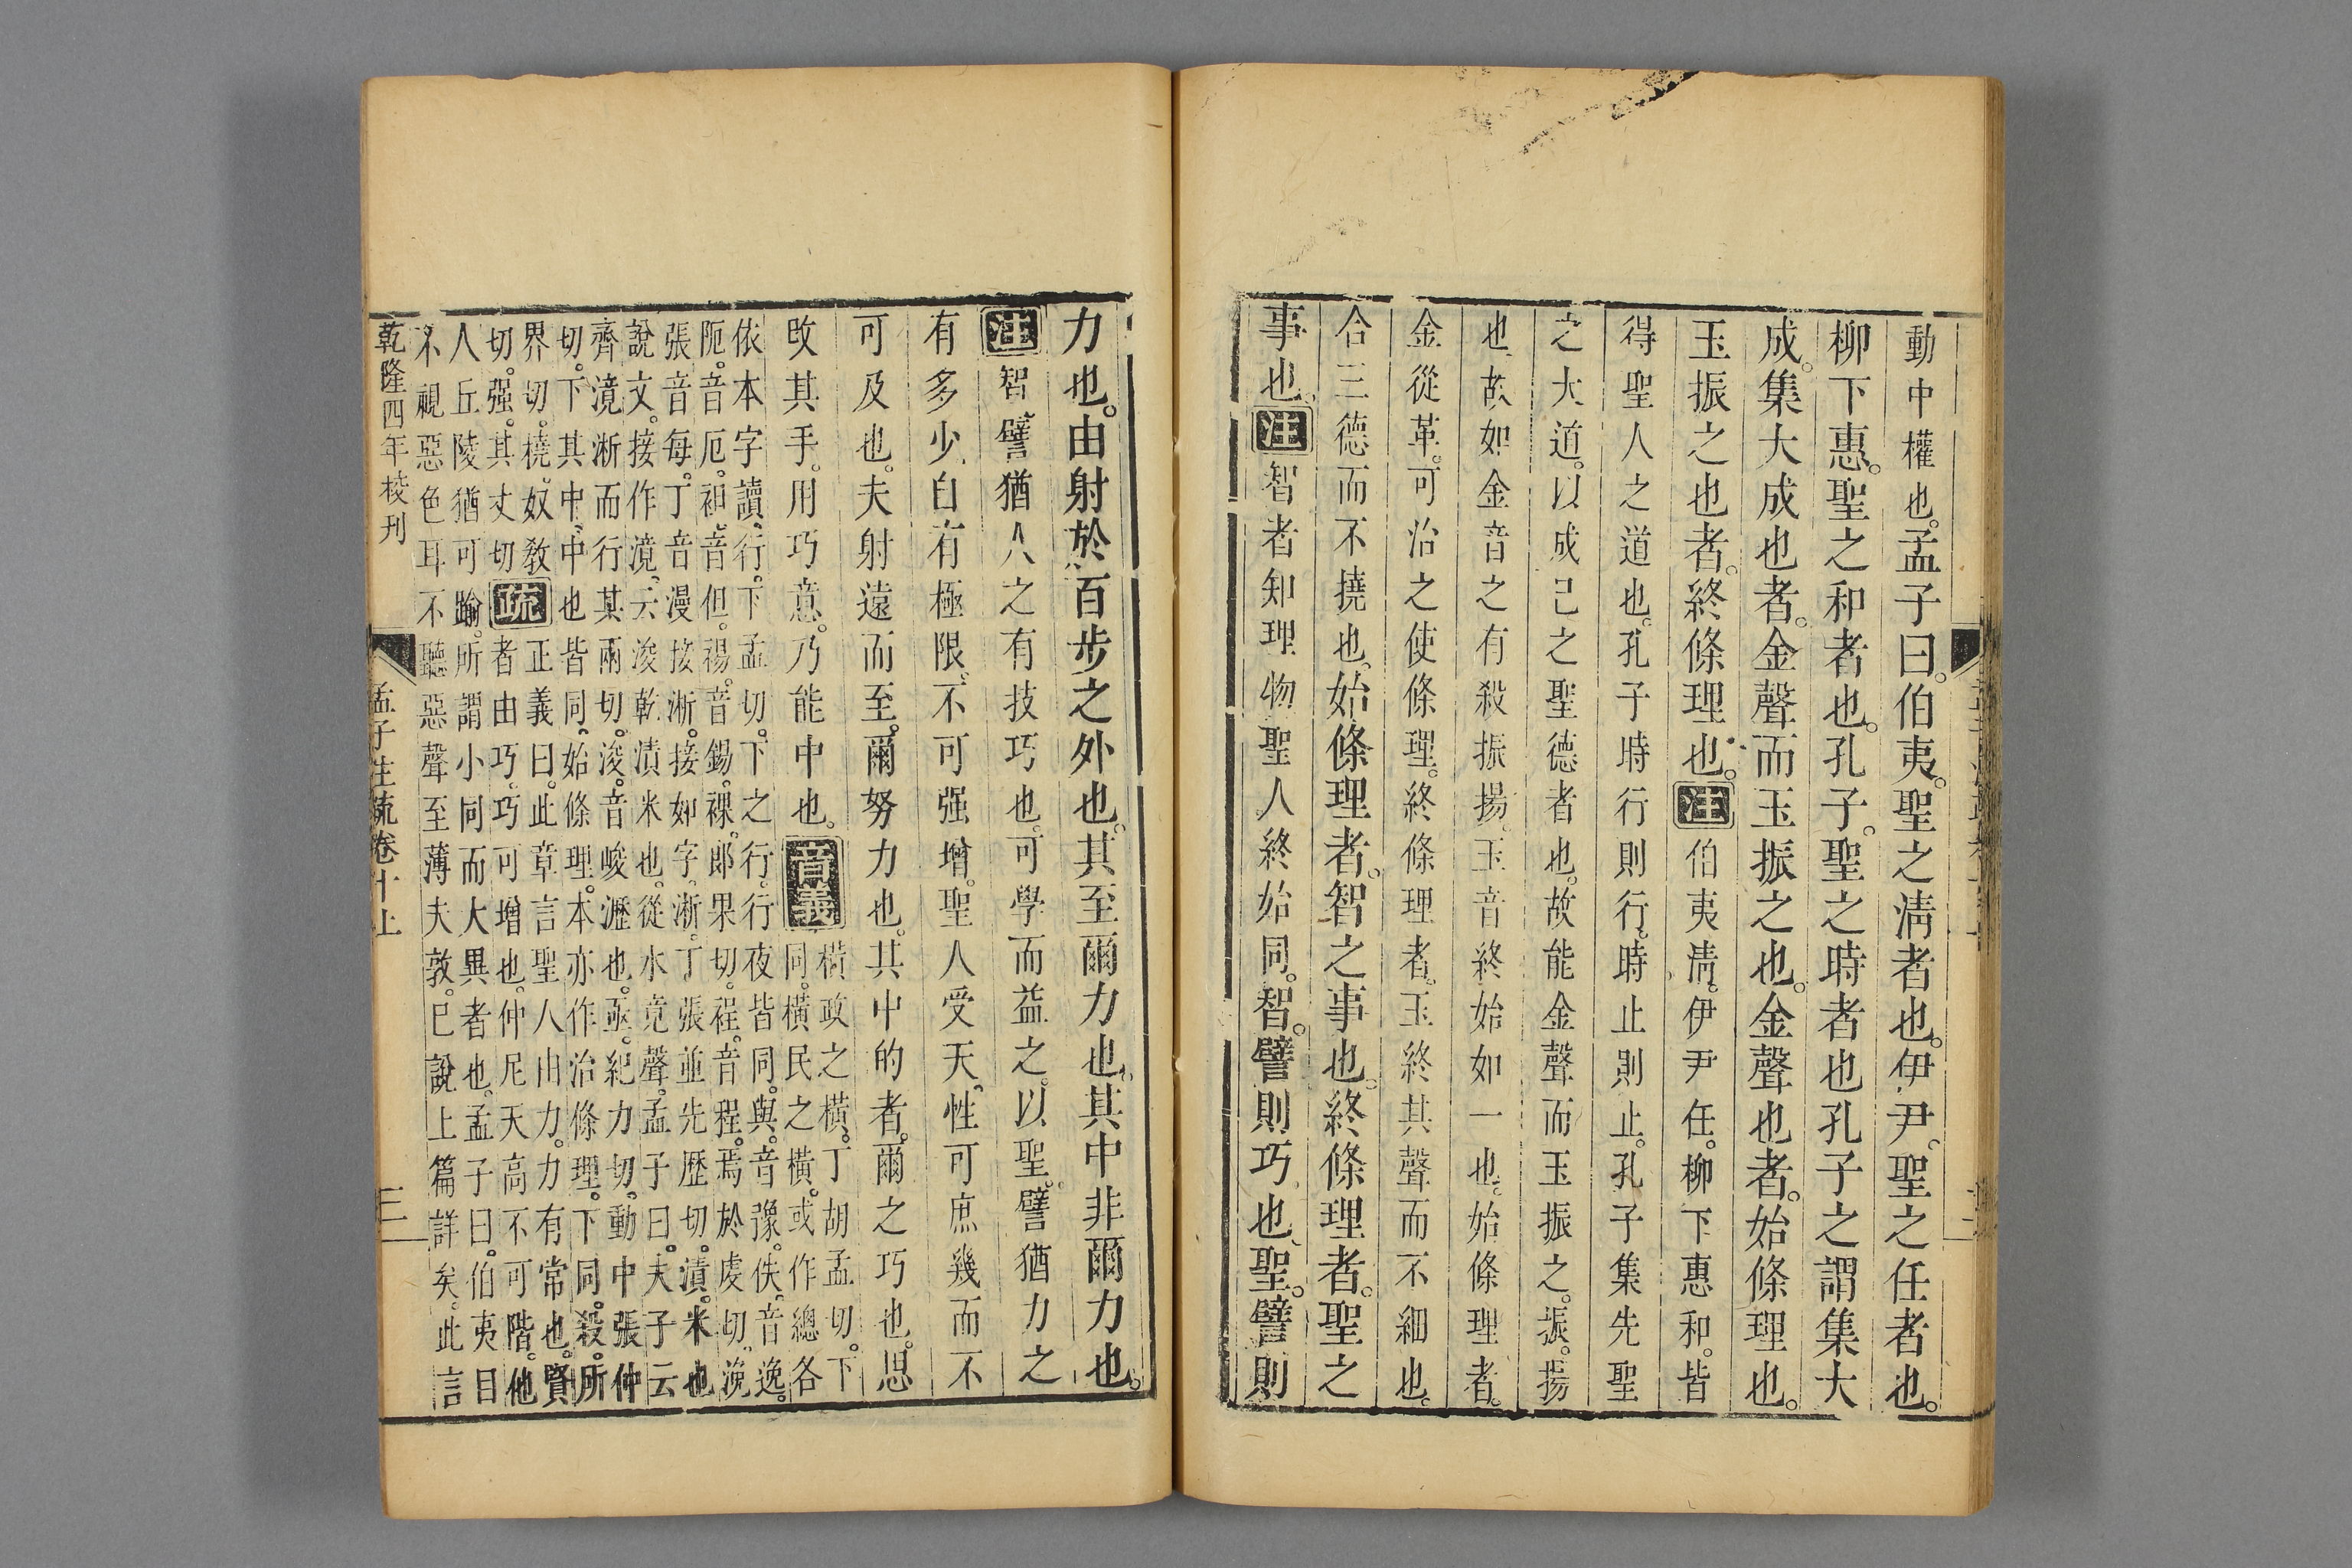 動中權也。孟子曰。伯夷。聖之淸者也。伊尹。聖之任者也。
柳下惠。聖之和者也。孔子。聖之時者也孔子之謂集大
成。集大成也者。金聲而玉振之也。金聲也者。始條理也。
玉振之也者。終條理也。注伯夷淸。伊尹任。柳下惠和。皆
得聖人之道也。孔子時行則行。時止則止。孔子集先聖
之大道。以成己之聖德者也。故能金聲而玉振之。振。揚
也。故如金音之有殺振揚。玉音終始如一也。始條理者。
金從革。可治之使條理。終條理者。玉終其聲而不細也。
合三德而不撓也。始條理者。智之事也。終條理者。聖之
事也。注智者知理物聖人終始同。智。譬則巧也。聖。譬則
力也。由射於百步之外也。其至爾力也。其中非爾力也。
注智譬猶人之有技巧也。可學而益之。以聖。譬猶力之
有多少。自有極限。不可强增。聖人受天性。可庶幾而不
可及也。夫射遠而至。爾努力也。其中的者。爾之巧也。思
攺其手。用巧意。乃能中也。音義
橫政之橫。丁胡孟切。下
同。橫民之橫。或作總各
依本字讀。行。下孟切。下之行。行夜皆同。與。音豫。佚。音逸。
阨。音厄。袒。音但。裼。音錫。裸。郎果切。裎。音程。焉。於虔切。浼
張音每。丁音漫接淅。接如字。淅。丁張並先歷切。漬。米也
說文。接作滰。云浚乾漬米也。從水竟聲。孟子曰。夫子云
齊滰淅而行其兩切。浚。音峻瀝也。亟。紀力切。動中。張仲
切。下其中。中也皆同。始條理。本亦作治條理。下同。殺。所
界切。橈。奴敎
切。强。其丈切
疏
正義曰。此章言聖人由力。力有常也。賢
者由巧。巧可增也。仲尼天高不可階。他
人丘陵猶可踰。所謂小同而大異者也。孟子曰。伯夷目
不視惡色耳不聽惡聲至薄夫敦。已說上篇詳矣。此言
乾隆四年校刊
孟子注疏卷十上
三